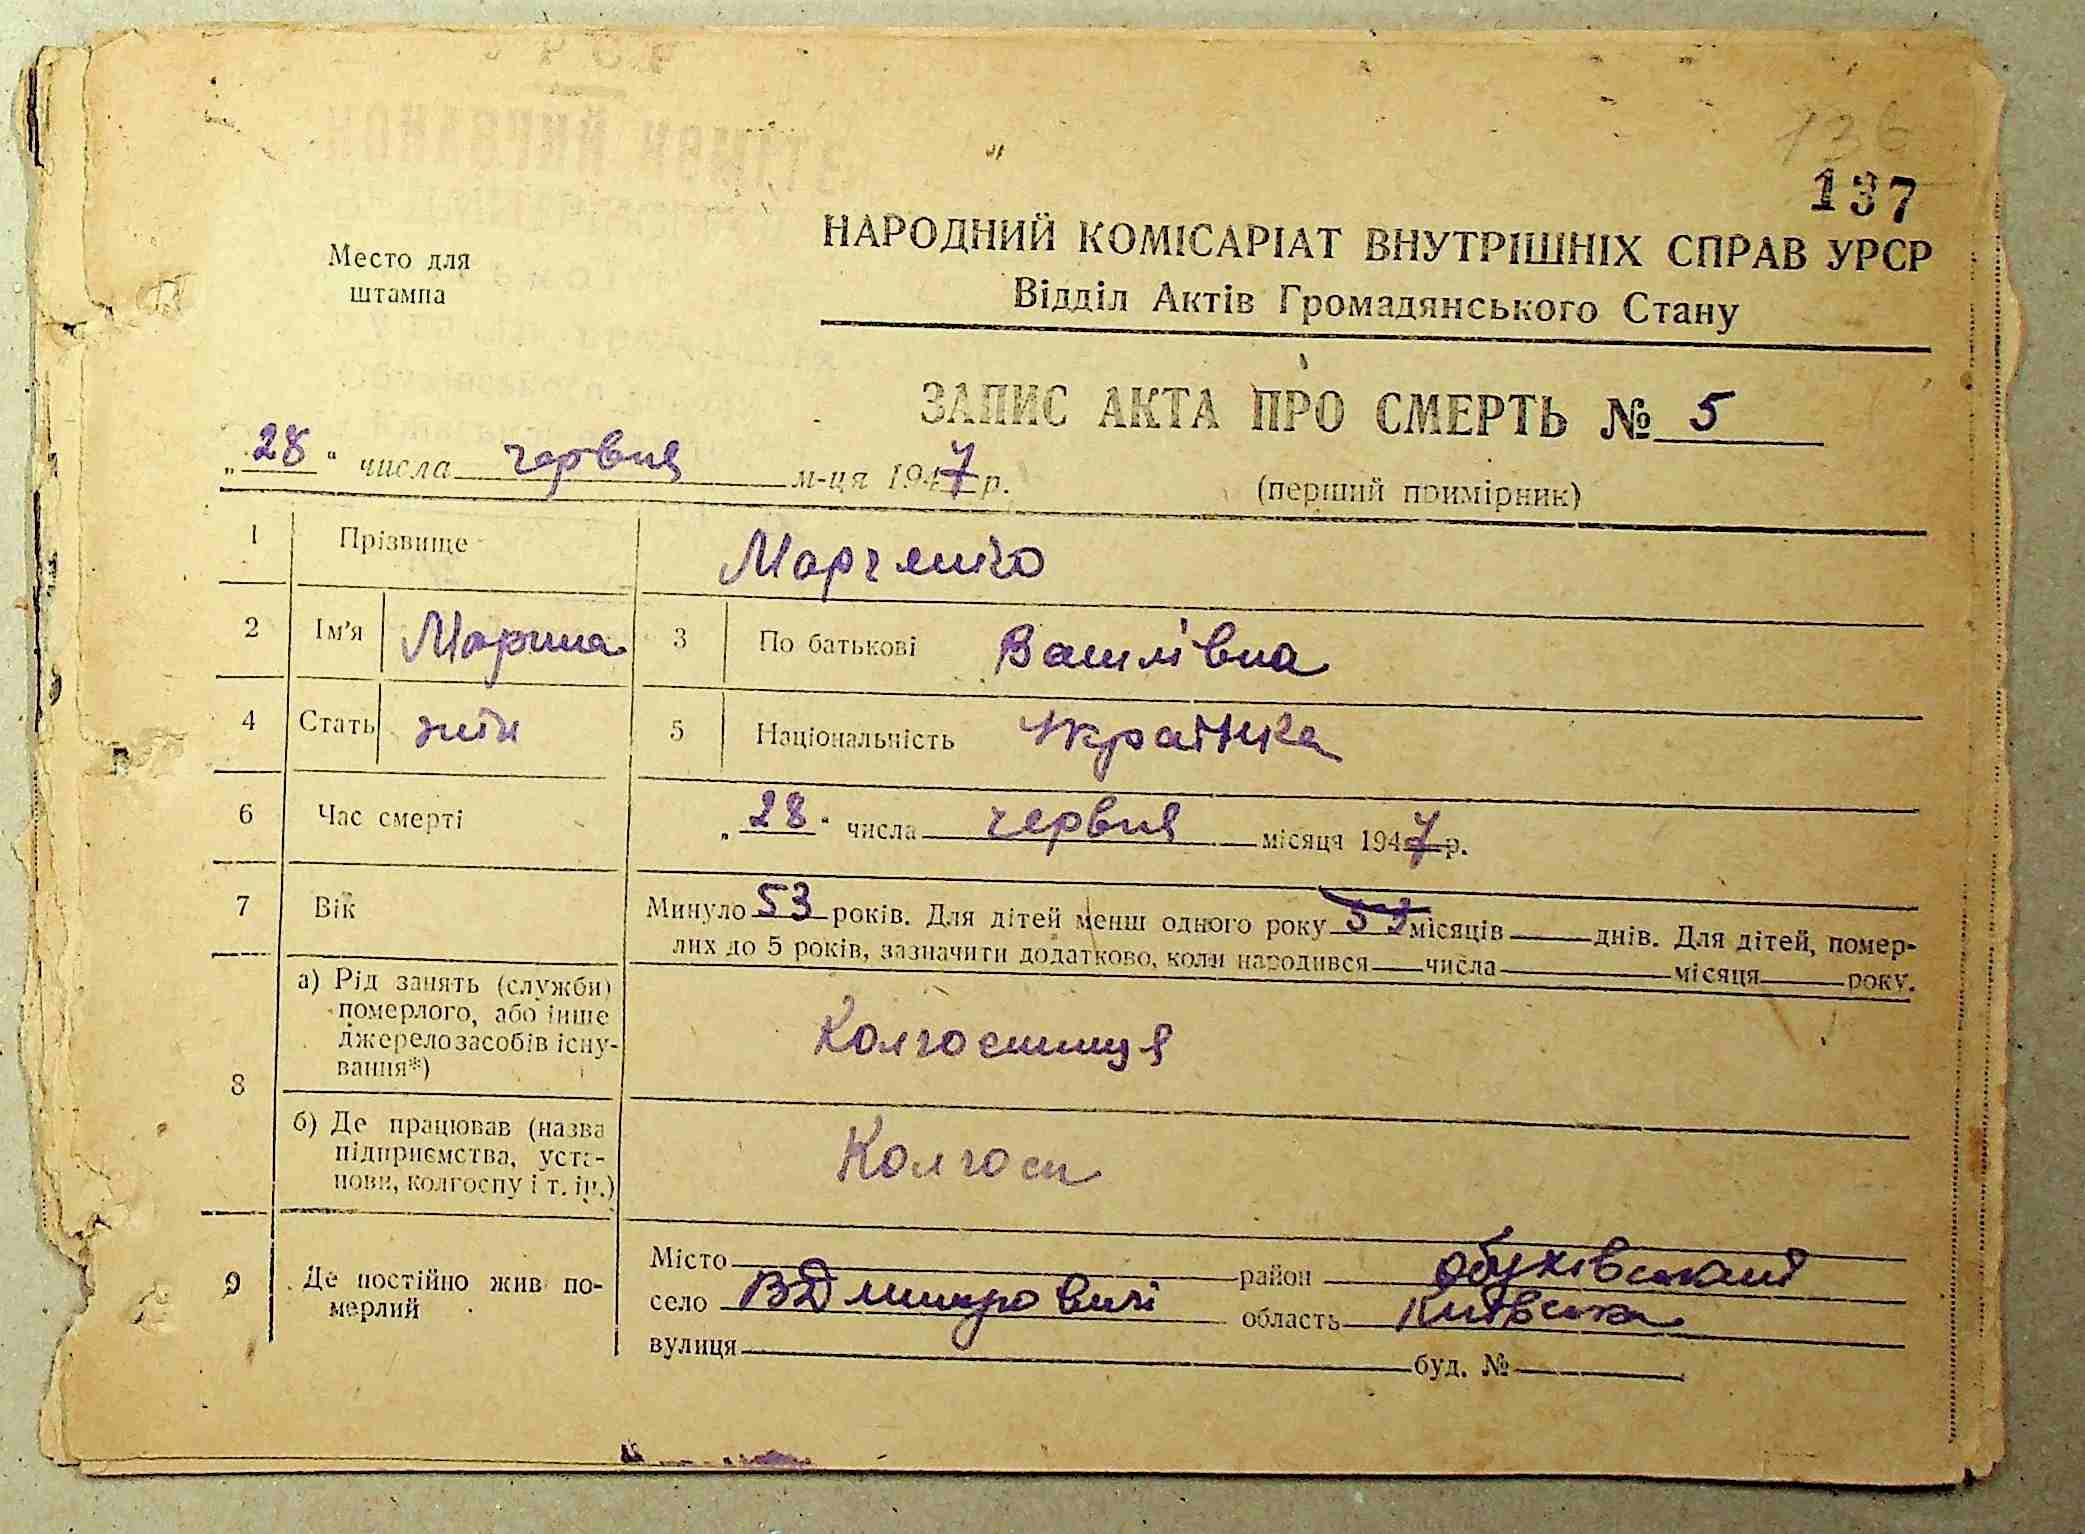 136
137
Место для
штампа
НАРОДНИЙ КОМІСАРІАТ ВНУТРІШНІХ СПРАВ УРСР
Відділ Актів Громадянського Стану
ЗАПИС АКТА ПРО СМЕРТЬ № 5
„28“ числа червня м-ця 1947 р.
(перший примірник)
1 Прізвище Марченко
2 Ім'я Марина 3 По батькові Василівна
4 Стать жін 5 Національність Українка
6 Час смерті „28“ числа червня місяця 1947 р.
7 Вік Минуло 53 років. Для дітей менш одного року 53 місяців днів. Для дітей, помер-
лих до 5 років, зазначити додатково, коли народився числа місяця року.
8 а) Рід занять (служби)
померлого, або інше
джерело засобів існу-
вання*)
Колгоспниця
б) Де працював (назва
підприємства, уста-
нови, колгоспу і т. ін.)
Колгосп
9 Де постійно жив по-
мерлий
Місто район Обухівський
село В Дмитровичі область Київська
вулиця буд. №